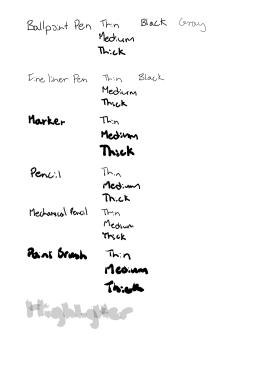 Ballpoint Pen Thin Black Gray
Medium
Thick
Fineliner Pen Thin Black
Medium
Thick
Marker Thin
Medium
Thick
Pencil Thin
Medium
Thick
Mechanical Pencil Thin
Medium
Thick
Paint Brush Thin
Medium
Thick
Highlighter